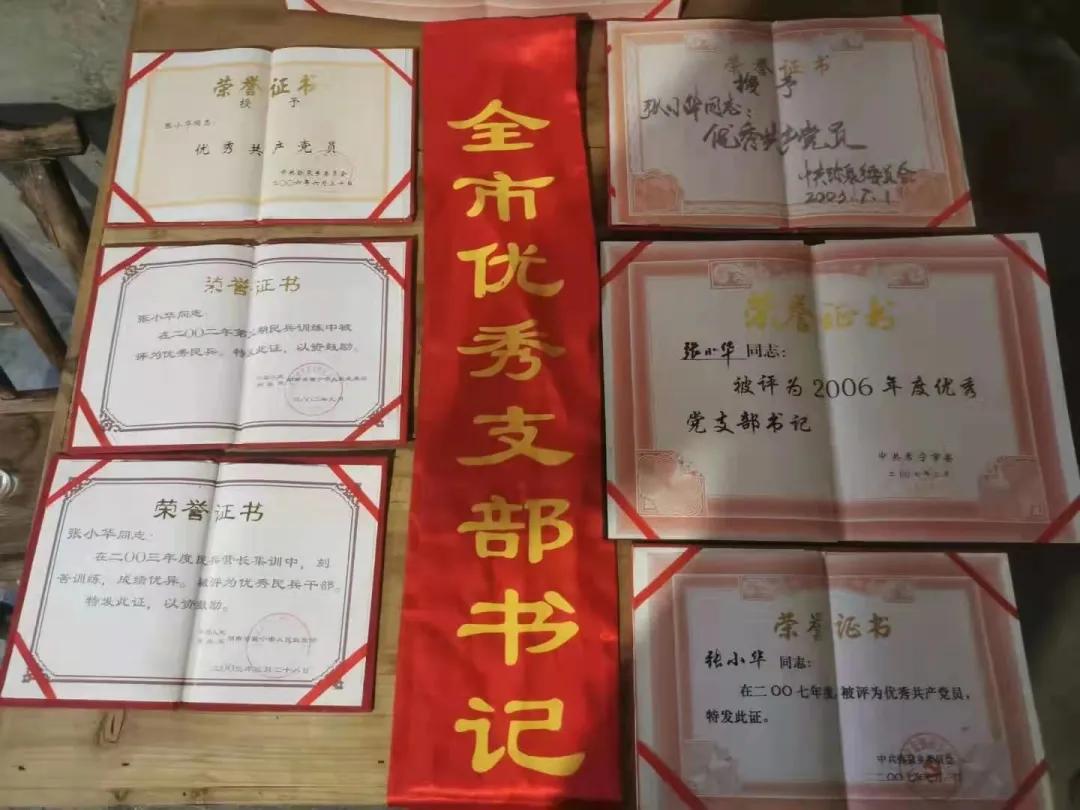 荣誉证书
授予
张小华同志：
优秀共产党员
二〇〇六年六月三十日
荣誉证书
张小华同志：
在二〇〇二年第 期民兵训练中被
评为优秀民兵。特发此证，以资鼓励。
荣誉证书
张小华同志：
在二〇〇三年度民兵营长集训中，刻
苦训练，成绩优异。被评为优秀民兵干部。
特发此证，以资鼓励。
全市优秀支部书记
荣誉证书
授予
张小华同志：
优秀共产党员
荣誉证书
张小华 同志：
被评为2006年度优秀
党支部书记
中共常宁市委
荣誉证书
张小华 同志：
在二〇〇七年度被评为优秀共产党员，
特发此证。